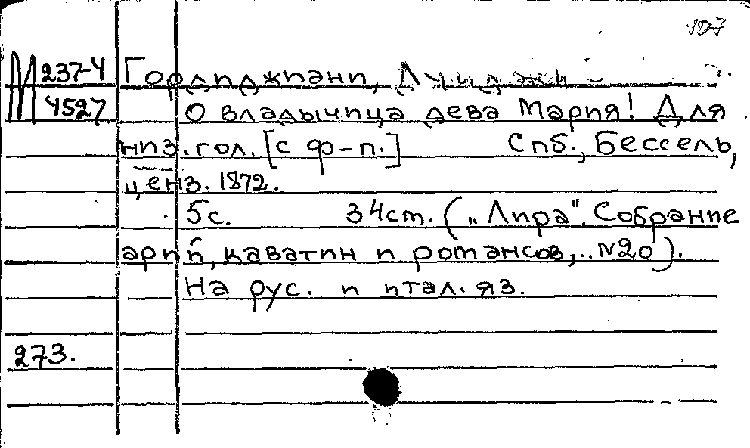 107
М 237-4 Гордиджиани, Луиджи -
4527 О владычица дева Мария! Для
низ. гол. [с ф-п.] Спб., Бессель,
ценз. 1872.
5с. 34см. („Лира". Собрание
арий, каватин и романсов,.. №20).
На рус. и итал. яз.
273.